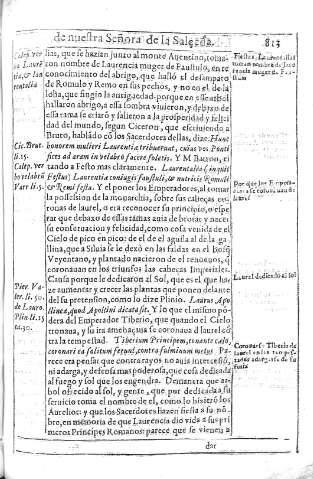 de nuestra Señora de la Salceda. 813
lias, que se hazian junto al monte Auentino, toma-
con nombre de Laurencia muger de Faustulo, en re-
conocimiento del abrigo, que halló el desamparo
de Romulo y Remo en sus pechos, y no en el de la
loba, que fingio la antiguedad: porque en este arbol
hallaron abrigo, a essa sombra viuieron, y debaxo de
essa rama se criaró y salieron a la prosperidad y felici
dad del mundo, segun Ciceron, que escriuiendo a
Bruto, hablãdo cõ los Sacerdotes dellas, dize. Hunc
honorem mulieri Laurentia tribuerunt, cuius vos Ponti
fices ad aram in velabro facere soletis. Y M. Varron, ci-
tando a Festo mas claramente. Laurentalia (inquit
Festus) Laurentia coniugis faustuli, & nutricis Romuli
& Remi festa. Y el poner los Emperadores, al tomar
la possesion de la monarchia, sobre sus cabeças co-
ronas de laurel, o era reconocer su principio, o espe-
rar que debaxo de essas ramas auia de brotar y nacer
su conseruacion y felicidad, como cosa venida de el
Cielo de pico en pico: de el de el aguila al de la ga-
llina, que a Siluia le dexò en las faldas en el Bosq
Veyentano, y plantado nacieron de el renueuos, q̃
coronauan en los triunfos las cabeças Imperiales.
Causa porque le dedicaron al Sol, que es el que ha-
ze aumentar y crecer las plantas que ponen delante
del su pretension, como lo dize Plinio. Laurus Apo
llinea, quod Apollini dicata sit. Y lo que el mismo po-
dera del Emperador Tiberio, que quando el Cielo
tronaua, y su ira amenaçaua se coronaua d laurel cõ
tra la tempestad. Tiberium Principem, tonante cælo
coronari ea solitum ferunt, contra fulminum metus. Pa-
rece era pensar que contra rayos no auia intercessiõ,
ni adarga, y defensa mas poderosa, que cosa dedicada
al fuego y sol que los engendra. Demanera que ar-
bol ofrecido al sol, y gente, que por dedicada a su
seruicio toma el nombre de el, como lo hizieró los
Aurelios: y que los Sacerdotes hazen fiesta a su nõ-
bre, en memoria de que Laurencia dio vida a sus pri
meros Principes Romanos: parece que se vienen a
dar
Cic. Brut.
li. 15.
Varr. li. 5.
Pier. Va-
ler. li. 50.
de Lauro.
Plin. li. 15
ca. 30.
Laurel dedicado al sol